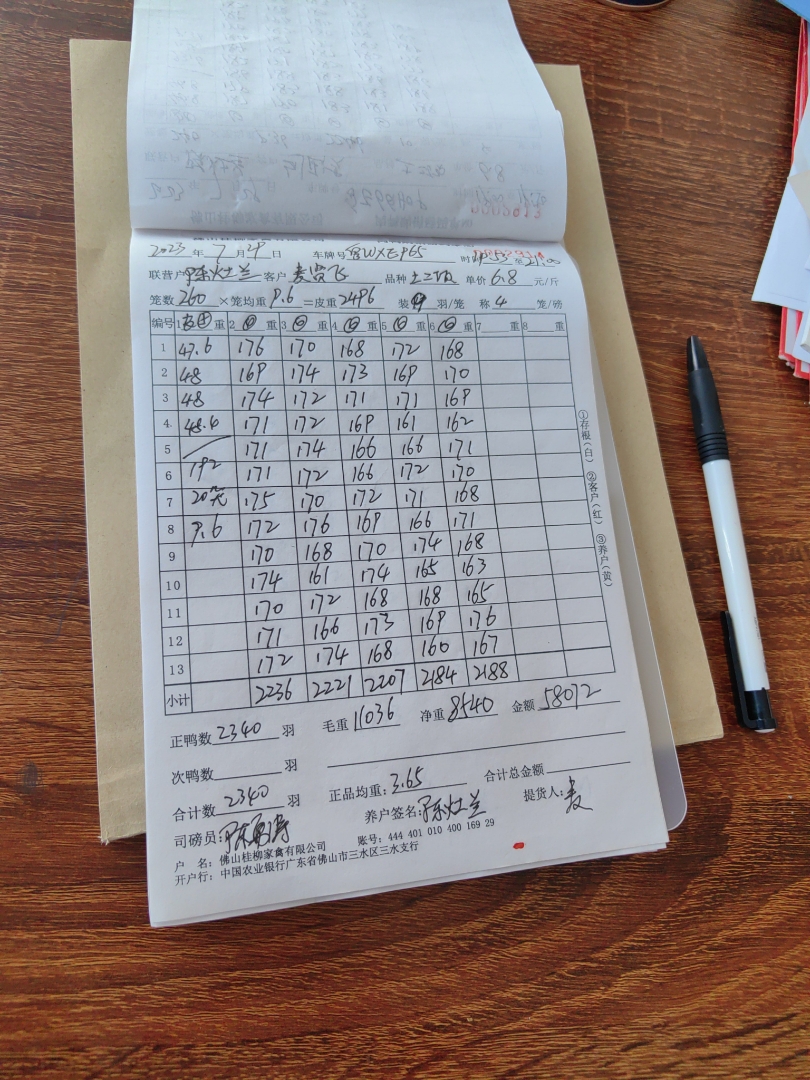 2023 年 7 月 29 日 车牌号 粤WXE965 时 至 21:00
联营户 陈灶兰 客户 麦贤飞 品种 土二 单价 6.8 元/斤
笼数 260 ×笼均重 9.6 =皮重 2496 装 9 羽/笼 称 4 笼/磅
编号 1 皮 重 2 重 3 重 4 重 5 重 6 重 7 重 8 重
1 47.6 176 170 168 172 168
2 48 169 174 173 169 170
3 48 174 172 171 171 169
4 48.4 171 172 169 161 162
5 171 174 166 166 171
6 192 171 172 166 172 170
7 20 175 170 172 171 168
8 9.6 172 176 169 166 171
9 170 168 170 174 168
10 174 161 174 165 163
11 170 172 168 168 165
12 171 166 173 169 176
13 172 174 168 160 167
小计 2236 2221 2207 2184 2188
①存根(白) ②客户(红) ③养户(黄)
正鸭数 2340 羽 毛重 11036 净重 8540 金额 58072
次鸭数 羽
合计数 2340 羽 正品均重: 3.65 合计总金额
司磅员: 养户签名: 陈灶兰 提货人: 麦
户 名: 佛山桂柳家禽有限公司 账号: 444 401 010 400 169 29
开户行: 中国农业银行广东省佛山市三水区三水支行